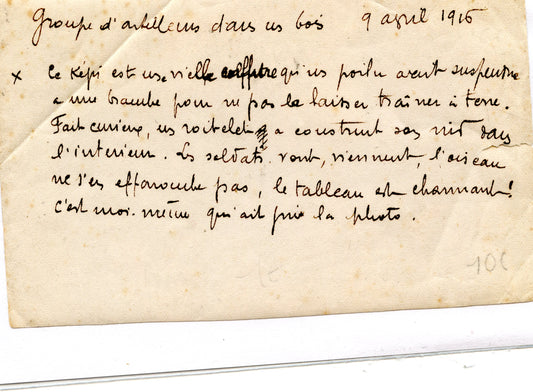 Groupe d'artilleurs dans un bois 9 avril 1915
x Ce Képi est une vielle coiffure qu'un poilu avait suspendue
a une branche pour ne pas le laisser traîner à terre.
Fait curieux, un roitelet a construit son nid dans
l'interieur. Les soldats vont, viennent, l'oiseau
ne s'en effarouche pas, le tableau est charmant!
C'est moi-même qui ait pris la photo.